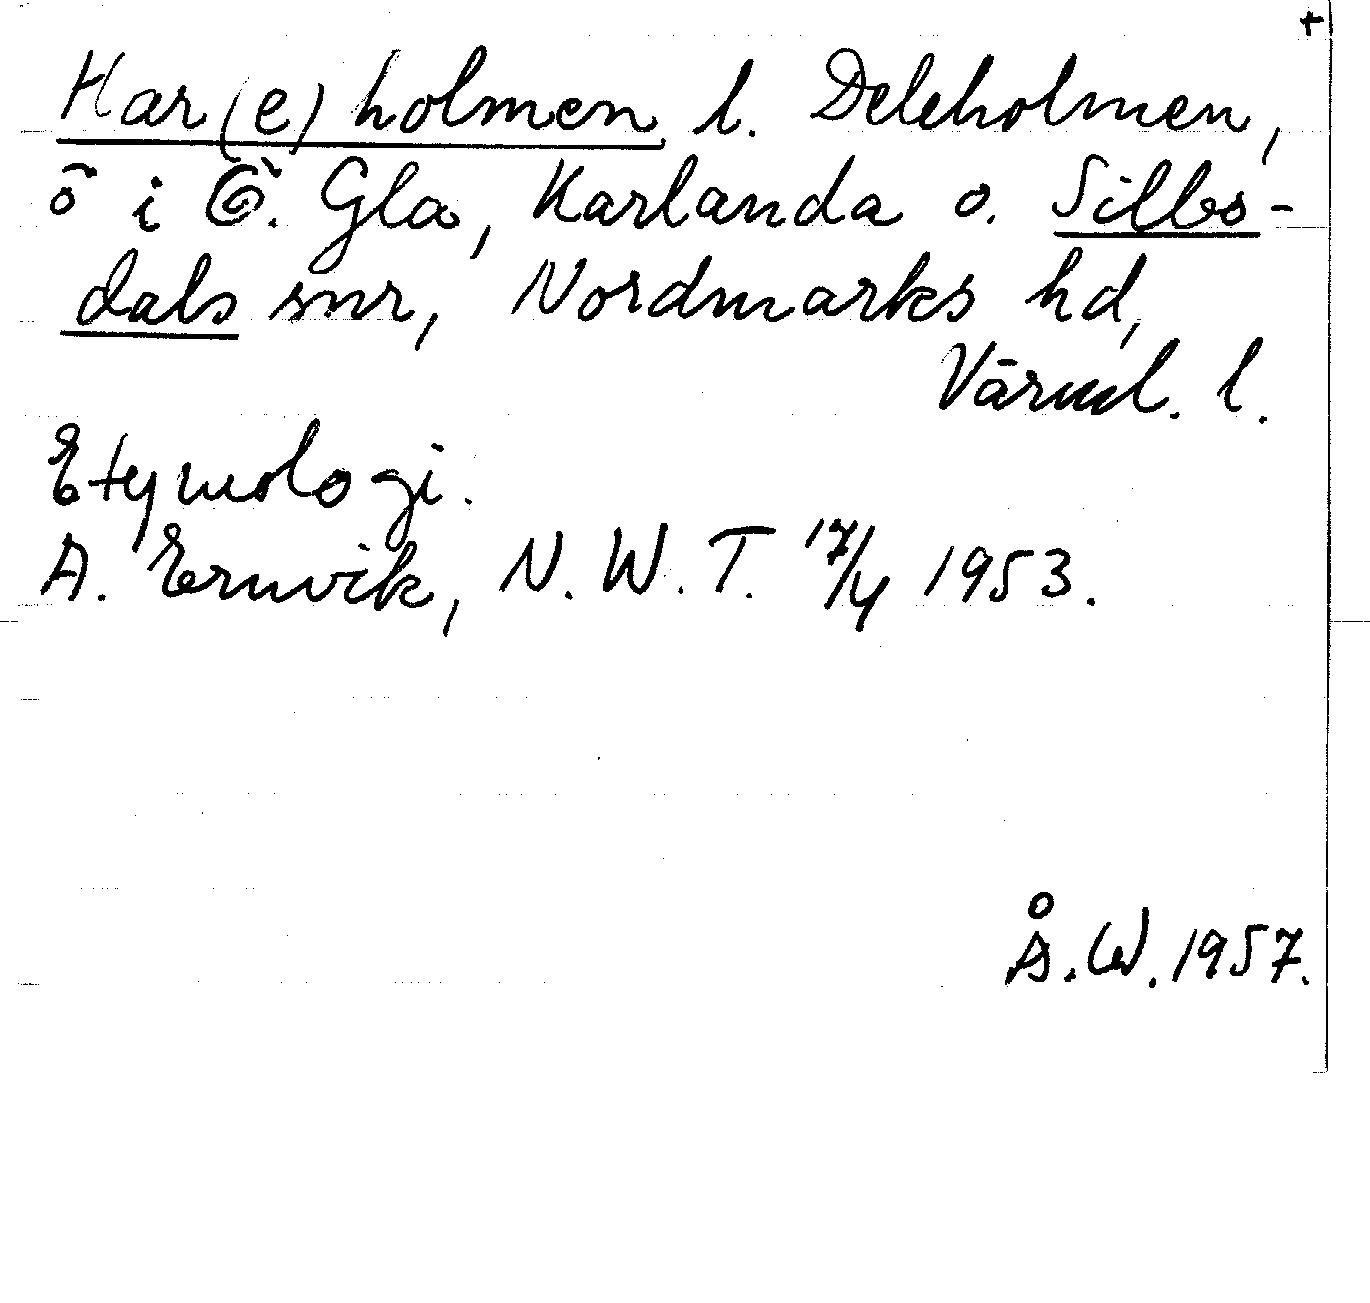 +
Har(e)holmen l. Deleholmen,
ö i Ö. Gla, Karlanda o. Sillbo-
dals snr, Nordmarks hd,
Värml. l.
Etymologi.
A. Ernvik, N. W. T. 17/4 1953.
Å. W. 1957.